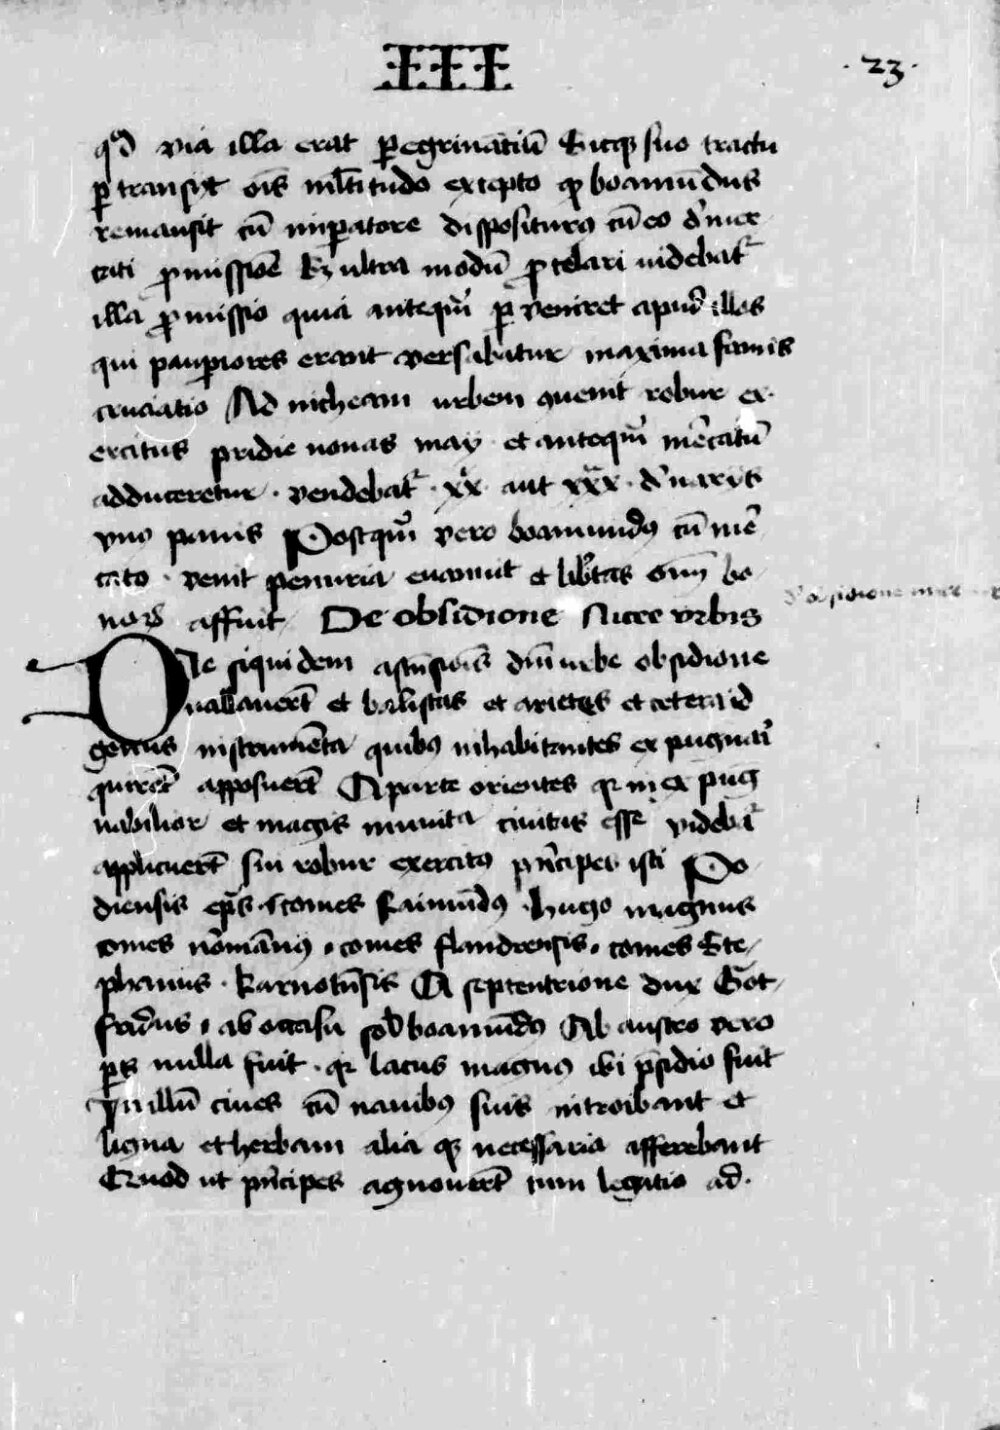 III
· 23 ·
qd via illa erat peregrinãtiũ hucq suo tractu
ptransijt oĩs mltitudo excepto q boamũdus
remansit cũ imperatore dispositurꝰ cũ eo d' mer
cati pmissiõe Sꝫ ultra modũ ptelari uidebat
illa pmissio quia anteqm perveniret apud illos
qui paupiores erant versabatur maxima famis
cruciatio Ad nicheam urbem quenit robur ex
ercitus pridie nonas may et anteqm mẽcatũ
adduceretur · vendebat · xx · aut xxx · d'narijs
vnꝰ panis Postqm vero boamundꝰ cũ mẽ
cato · venit penuria euanuit et libtas oim bo
noꝝ affuit De obsidione Nicee vrbis
Die siquidem ascẽsiõis dnĩ urbe obsidione
uallauert et balistas et arietes et cetera id
genus instrumẽta quibꝰ inhabitantes expugnari
quirent apposuert A parte orientes q inexpug
nabilior et magis munita ciuitas esse videbat
applicuert sui robur exercitꝰ pncipes isti Po
diensis eps comes Raimũdꝰ · hugo magnus
comes nomãnꝰ · comes flandrensis · comes Ste
phanus · karnotẽsis A septentrione dux Got
fridus · ab occasu sol' boamũdꝰ Ab austro vero
ps nulla fuit · q lacus magnus ibi psidio fuit
In illũ ciues cũ nauibꝰ suis introibant et
ligna et herbam alia qꝫ necessaria afferebant
Quod ut pncipes agnouert tum legatio ad ·